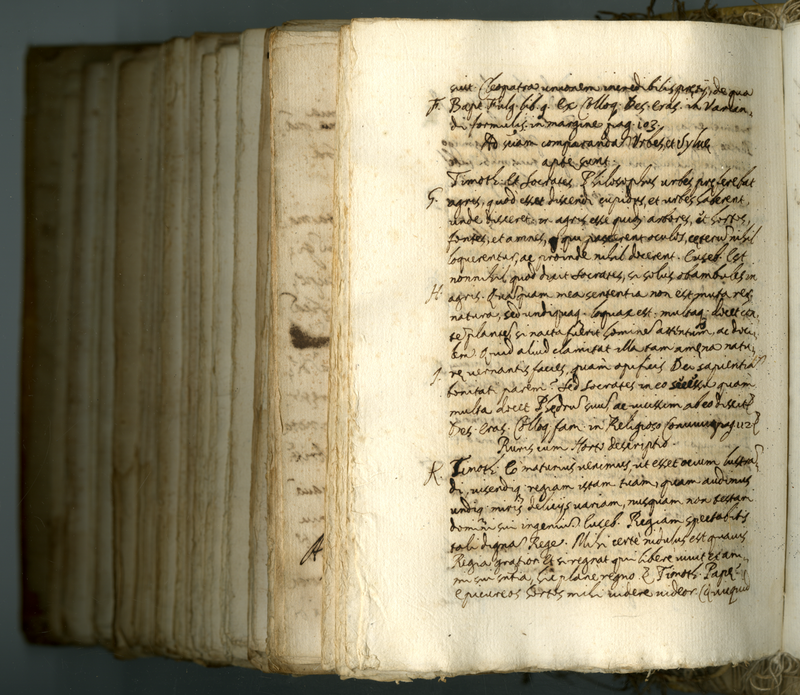 suit. Cleopatra unionem incredibilis pretij, de qua
F. Bapt. Fulg. lib. 9. Ex Colloq. Des. Eras. in Varian
di formulis in margine pag. 103.
Urbes et Sylvæ
aptæ sunt.
Timoth. Et Socrates Philosophus urbes præferebat
G. agris, quod esset discendi cupidus, et urbes haberent,
unde disceret: in agris esse quidem arbores, et hortos,
fontes, et amnes, qui pascerent oculos, ceterum nihil
loquerentur, ac proinde nihil docerent. Euseb. Est
nonnihil quod dixit Socrates, si solus obambules in
H agris. Quamquam mea sententia non est muta rerum
natura, sed undiquaq. loquax est. multaq. docet con
templantem, si nacta fuerit hominem attentum, ac doci
lem. Quid aliud clamitat illa tam amæna natu
I. ræ vernantis facies, quam opificis Dei sapientiam
bonitati parem? Sed Socrates in eo secessu quam
multa docet Phædrum suum ac vicissim ab eo discit?
Des. Eras. Colloq. fam. in Religioso Convivio pag. 112
Ruris cum Horto descriptio.
K. Timoth. Eo maturius venimus, ut esset ocium lustran
di, visendiq. regiam istam tuam, quam audimus
undiq. miris delicijs variam, nusquam non testari
domini sui ingenium. Euseb. Regiam spectabitis
tali dignam Rege. Mihi certe nidulus est quavis
Regia gratior. Et si regnat qui libere vivit ex ani
mi sui sententia, hic plane regno. Timoth. Papæ
Epicureos hortos mihi videre videor. Quicquid
A